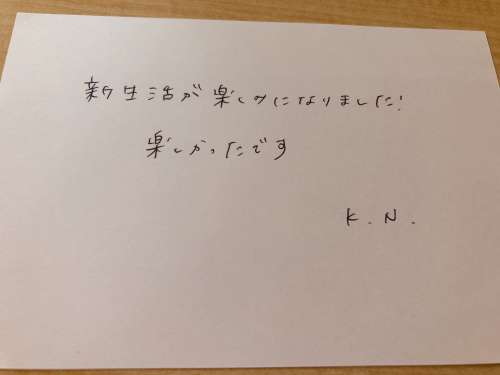 新生活が楽しみになりました!
楽しかったです
K.N.